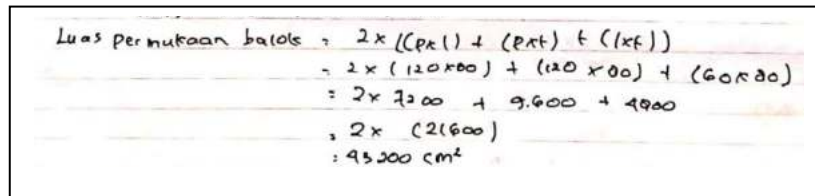 Luas permukaan balok = 2 x ((pxl) + (pxt) + (lxt))
= 2 x (120x60) + (120 x 80) + (60x80)
= 2x 7200 + 9.600 + 4800
= 2x (21600)
= 43200 cm²